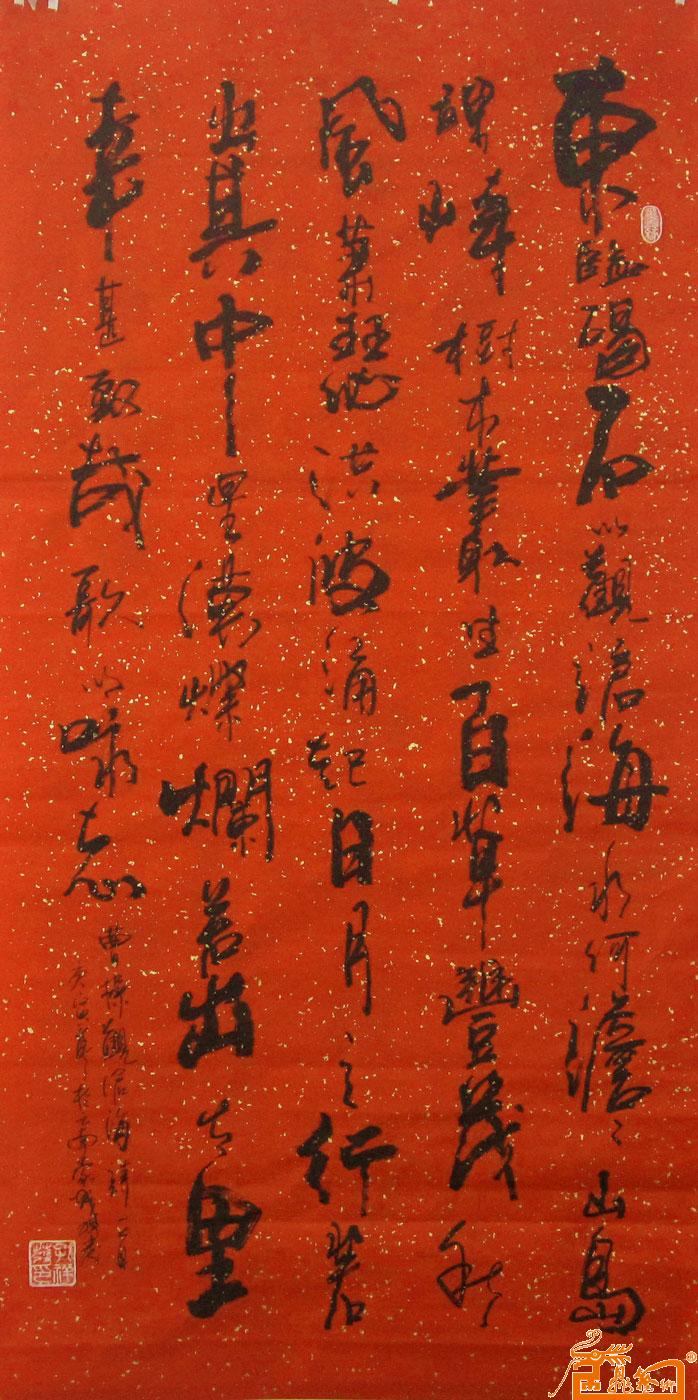 東臨碣石以觀滄海水何澹〻山島
樹木叢生百草豐茂秋
風蕭瑟洪波涌起日月之行若
出其中星漢燦爛若出其里
幸甚至哉歌以詠志
曹操觀滄海詩一首
庚寅年於